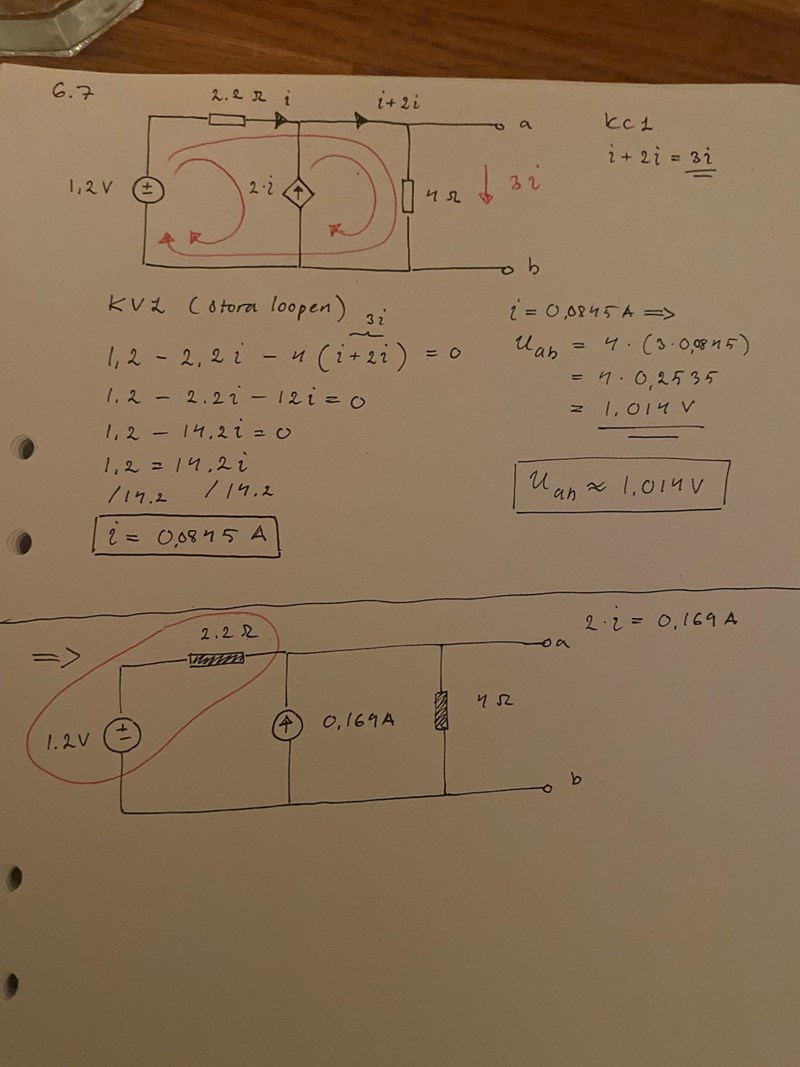 6.7
2.2 Ω i i+2i
a
KCL
i + 2i = 3i
1,2 V
2·i
4 Ω
3i
b
KVL (stora loopen)
3i
1,2 - 2,2i - 4 (i+2i) = 0
1.2 - 2.2i - 12i = 0
1,2 - 14.2i = 0
1,2 = 14.2i
/14.2 /14.2
i = 0,0845 A
i = 0,0845 A =>
Uab = 4 · (3·0,0845)
= 4 · 0,2535
= 1.014 V
Uab ≈ 1.014 V
=>
2.2 Ω
a
2·i = 0,169 A
1.2V
0,169 A
4 Ω
b